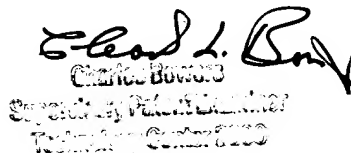 Charles L. Bow
Charles Bowers
Supervisory Patent Examiner
Technology Center 2800